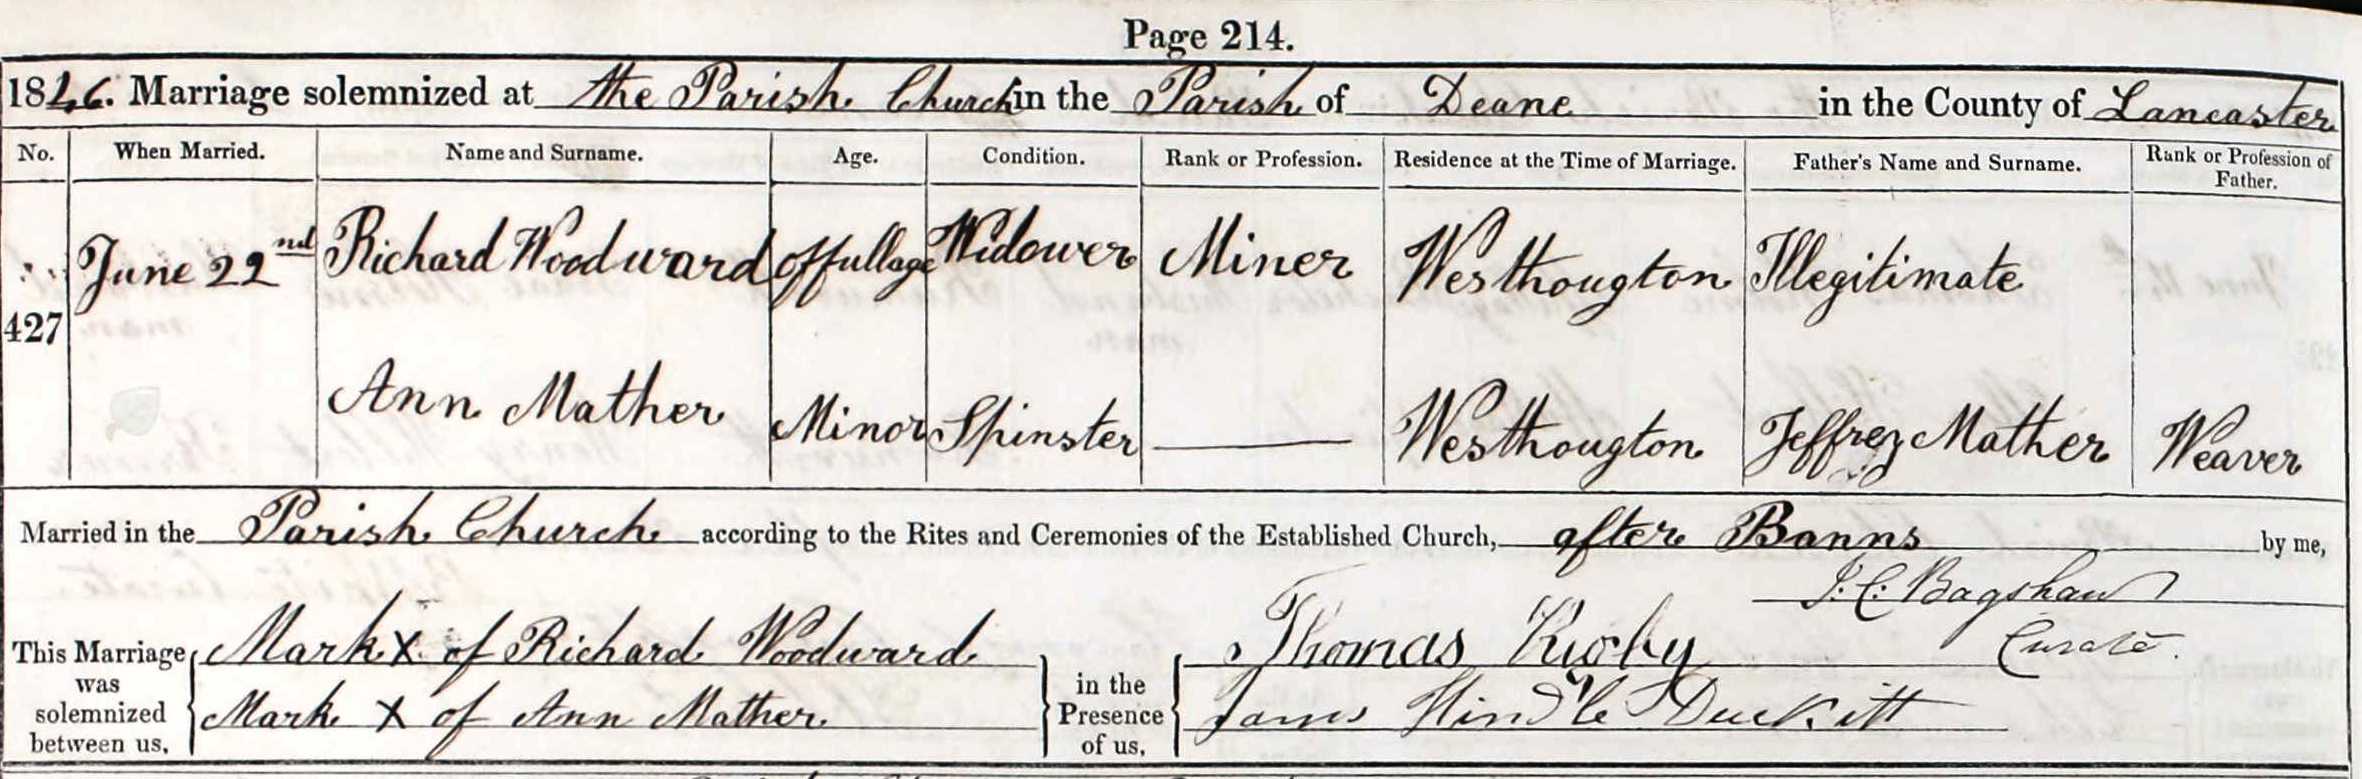 Page 214.
1846. Marriage solemnized at the Parish Church in the Parish of Deane in the County of Lancaster
No. When Married. Name and Surname. Age. Condition. Rank or Profession. Residence at the Time of Marriage. Father's Name and Surname. Rank or Profession of Father.
427 June 22nd Richard Woodward of full age Widower Miner Westhougton Illegitimate
Ann Mather Minor Spinster Westhougton Jeffrey Mather Weaver
Married in the Parish Church according to the Rites and Ceremonies of the Established Church, after Banns by me,
J. C. Bagshaw
Curate.
This Marriage was solemnized between us, Mark X of Richard Woodward in the Presence of us, Thomas
Mark X of Ann Mather. James Hindle Duckitt